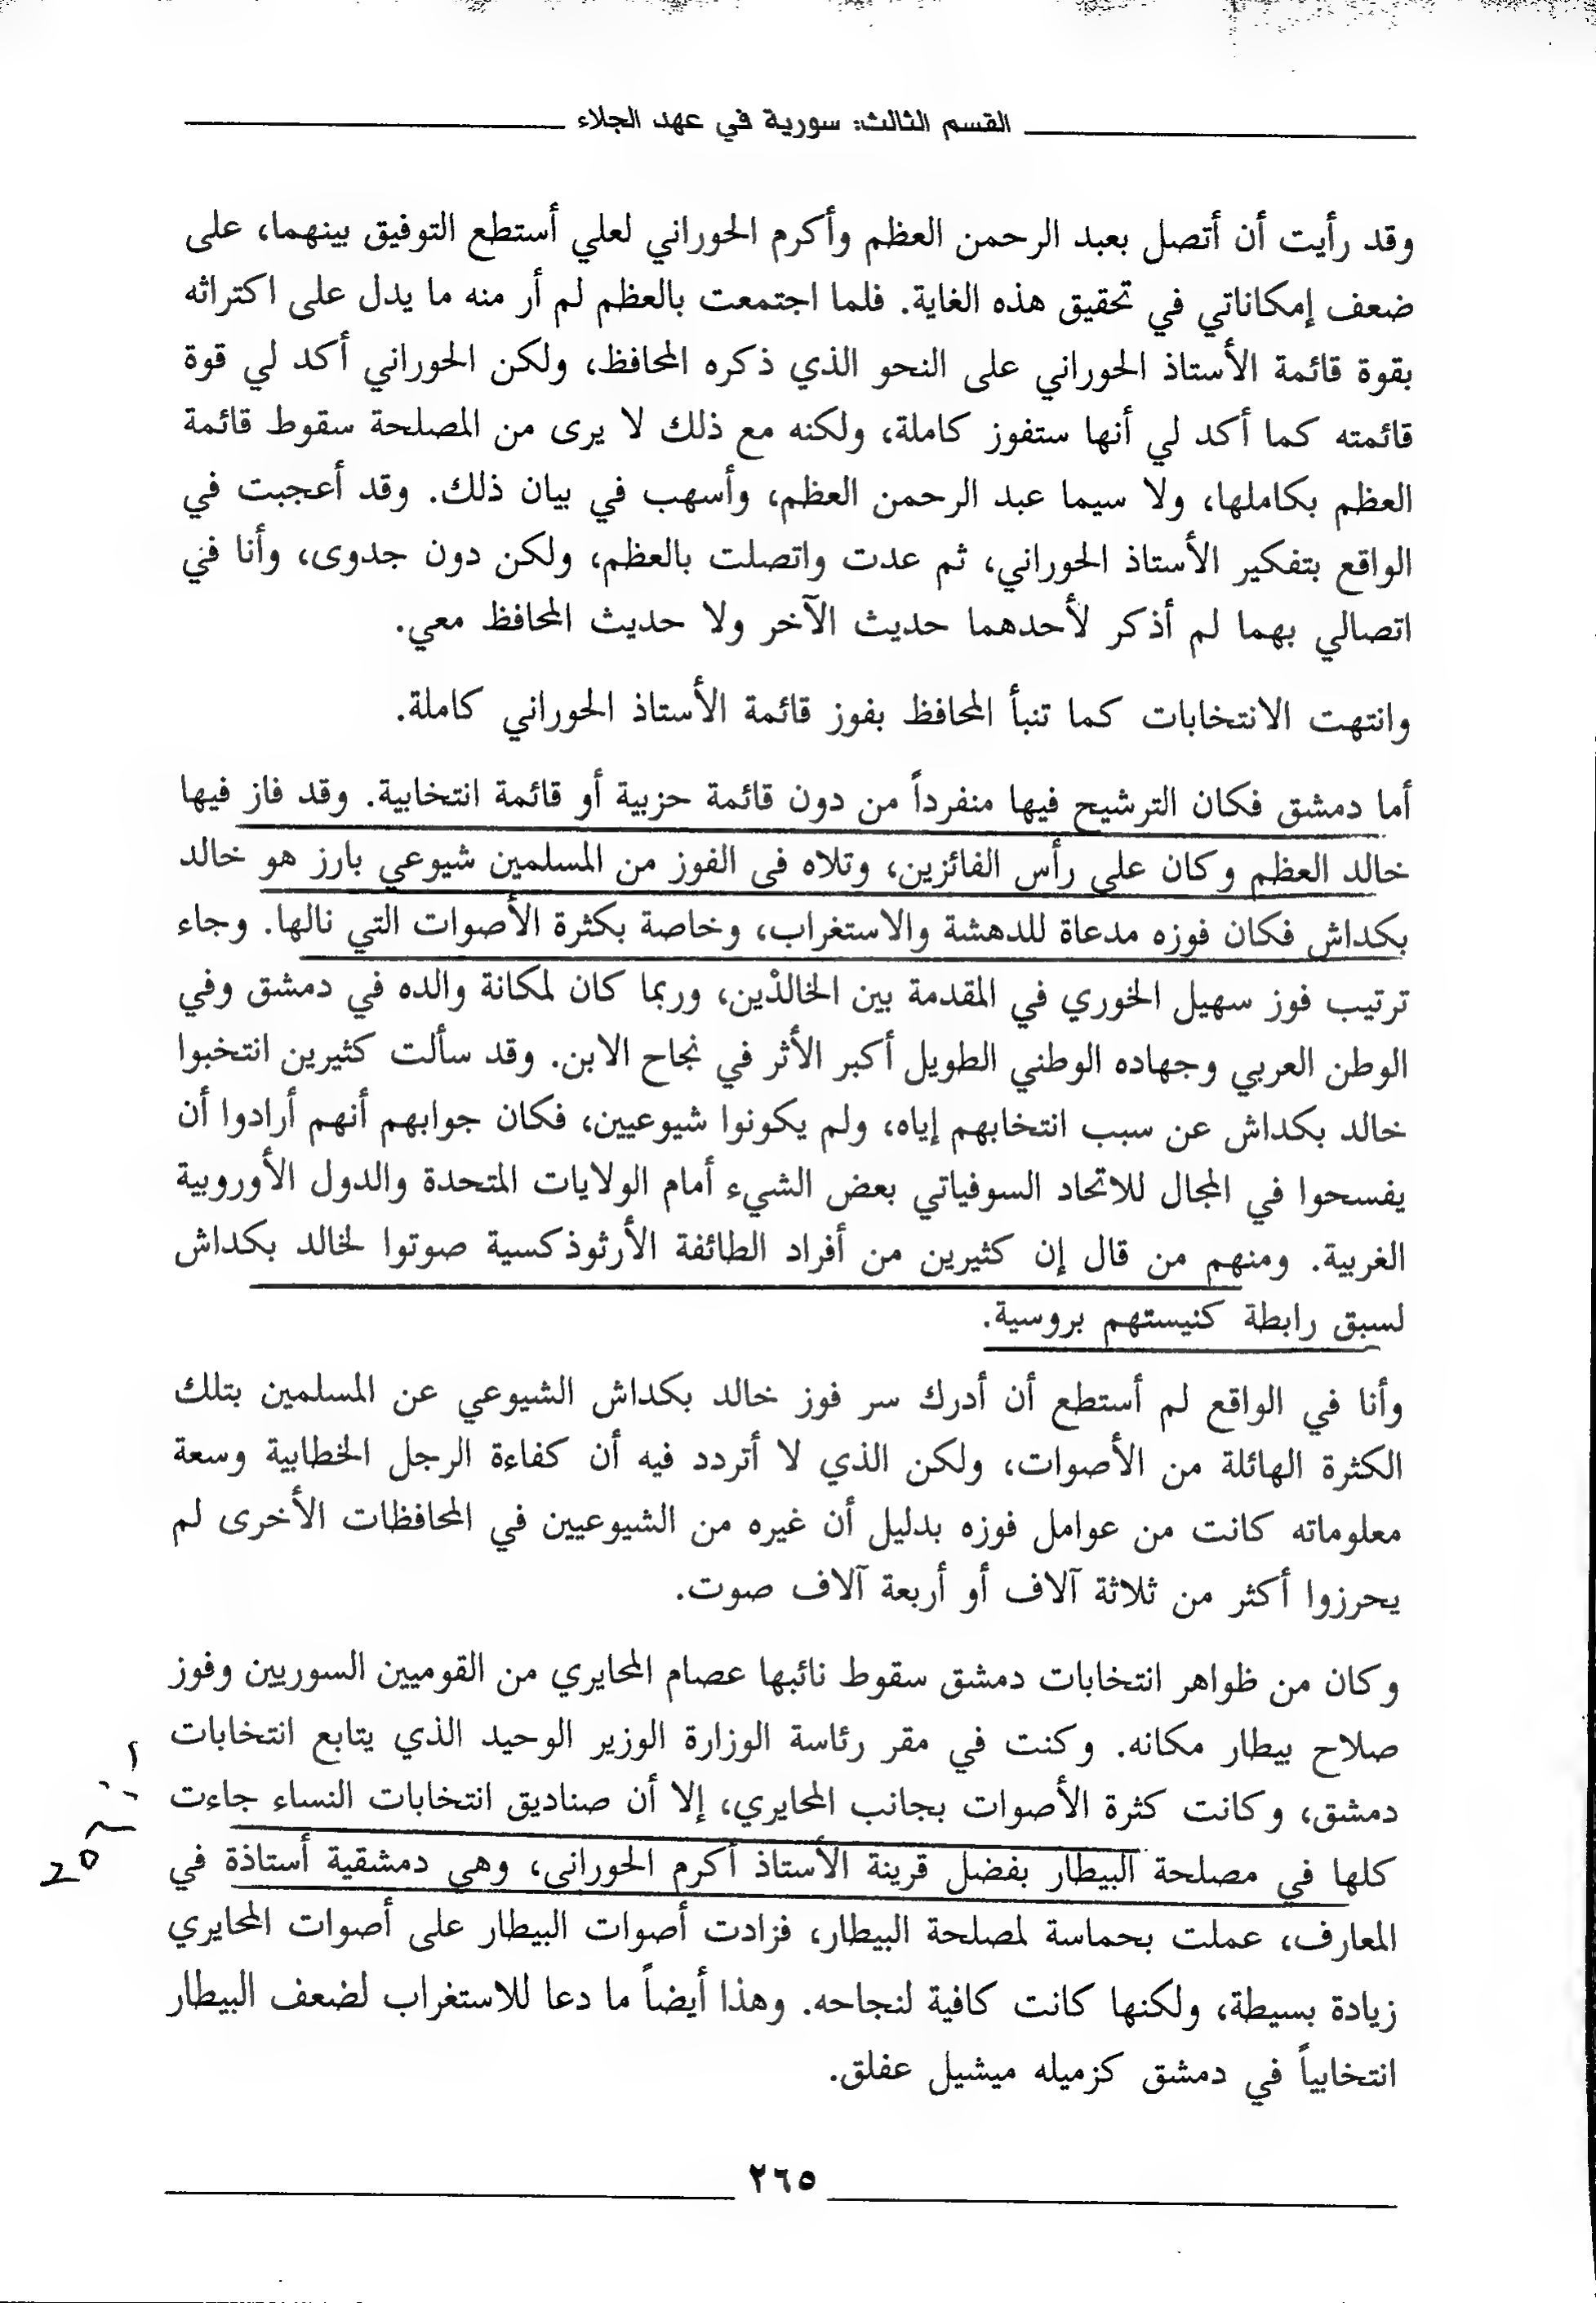 القسم الثالث: سورية في عهد الجلاء
وقد رأيت أن أتصل بعبد الرحمن العظم وأكرم الحوراني لعلي أستطع التوفيق بينهما، على
ضعف إمكاناتي في تحقيق هذه الغاية. فلما اجتمعت بالعظم لم أر منه ما يدل على اكتراثه
بقوة قائمة الأستاذ الحوراني على النحو الذي ذكره المحافظ، ولكن الحوراني أكد لي قوة
قائمته كما أكد لي أنها ستفوز كاملة، ولكنه مع ذلك لا يرى من المصلحة سقوط قائمة
العظم بكاملها، ولا سيما عبد الرحمن العظم، وأسهب في بيان ذلك. وقد أعجبت في
الواقع بتفكير الأستاذ الحوراني، ثم عدت واتصلت بالعظم، ولكن دون جدوى، وأنا في
اتصالي بهما لم أذكر لأحدهما حديث الآخر ولا حديث المحافظ معي.
وانتهت الانتخابات كما تنبأ المحافظ بفوز قائمة الأستاذ الحوراني كاملة.
أما دمشق فكان الترشيح فيها منفرداً من دون قائمة حزبية أو قائمة انتخابية. وقد فاز فيها
خالد العظم وكان على رأس الفائزين، وتلاه في الفوز من المسلمين شيوعي بارز هو خالد
بكداش فكان فوزه مدعاة للدهشة والاستغراب، وخاصة بكثرة الأصوات التي نالها. وجاء
ترتيب فوز سهيل الخوري في المقدمة بين الخالدْين، وربما كان لمكانة والده في دمشق وفي
الوطن العربي وجهاده الوطني الطويل أكبر الأثر في نجاح الابن. وقد سألت كثيرين انتخبوا
خالد بكداش عن سبب انتخابهم إياه، ولم يكونوا شيوعيين، فكان جوابهم أنهم أرادوا أن
يفسحوا في المجال للاتحاد السوفياتي بعض الشيء أمام الولايات المتحدة والدول الأوروبية
الغربية. ومنهم من قال إن كثيرين من أفراد الطائفة الأرثوذكسية صوتوا لخالد بكداش
لسبق رابطة كنيستهم بروسية.
وأنا في الواقع لم أستطع أن أدرك سر فوز خالد بكداش الشيوعي عن المسلمين بتلك
الكثرة الهائلة من الأصوات، ولكن الذي لا أتردد فيه أن كفاءة الرجل الخطابية وسعة
معلوماته كانت من عوامل فوزه بدليل أن غيره من الشيوعيين في المحافظات الأخرى لم
يحرزوا أكثر من ثلاثة آلاف أو أربعة آلاف صوت.
وكان من ظواهر انتخابات دمشق سقوط نائبها عصام المحايري من القوميين السوريين وفوز
صلاح بيطار مكانه. وكنت في مقر رئاسة الوزارة الوزير الوحيد الذي يتابع انتخابات
دمشق، وكانت كثرة الأصوات بجانب المحايري، إلا أن صناديق انتخابات النساء جاءت
كلها في مصلحة البيطار بفضل قرينة الأستاذ أكرم الحوراني، وهي دمشقية أستاذة في
المعارف، عملت بحماسة لمصلحة البيطار، فزادت أصوات البيطار على أصوات المحايري
زيادة بسيطة، ولكنها كانت كافية لنجاحه. وهذا أيضاً ما دعا للاستغراب لضعف البيطار
انتخابياً في دمشق كزميله ميشيل عفلق.
٢٦٥